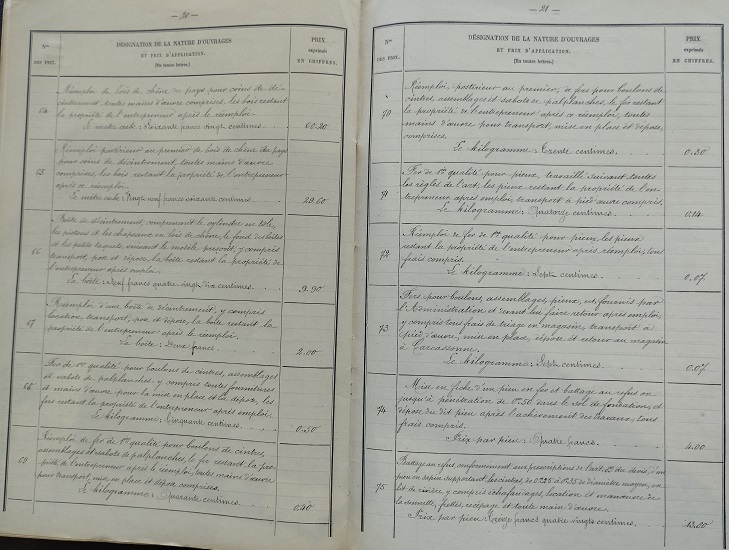 — 20 —
Nos
DES PRIX.
DÉSIGNATION DE LA NATURE D'OUVRAGES
ET PRIX D'APPLICATION.
(En toutes lettres.)
PRIX
exprimés
EN CHIFFRES.
64
Réemploi de bois de chêne du pays pour coins de dé-
cintrement, toutes mains d'œuvre comprises, les bois restant
la propriété de l'entrepreneur après le réemploi.
Le mètre cube : Soixante francs vingt centimes.
60.20
65
Réemploi postérieur au premier de bois de chêne du pays
pour coins de décintrement, toutes mains d'œuvre
comprises, les bois restant la propriété de l'entrepreneur
après ce réemploi.
Le mètre cube : Vingt neuf francs soixante centimes.
29.60
66
Boîte de décintrement, comprenant le cylindre en tôle,
les pistons et les chapeaux en bois de chêne, le fond des boîtes
et les petits taquets, suivant le modèle prescrit, y compris
transport, pose et dépose, la boîte restant la propriété de
l'entrepreneur après emploi.
La boîte : Neuf francs quatre vingt dix centimes.
9.90
67
Réemploi d'une boîte de décintrement, y compris
location, transport, pose et dépose, la boîte restant la
propriété de l'entrepreneur après le réemploi.
La boîte : Deux francs.
2.00
68
Fer de 1re qualité pour boulons de cintres, assemblages
et sabots de palplanches, y compris toutes fournitures
et mains d'œuvre pour la mise en place et la dépose, les
fers restant la propriété de l'entrepreneur après emploi.
Le kilogramme : Cinquante centimes.
0.50
69
Réemploi de fer de 1re qualité pour boulons de cintres,
assemblages et sabots de palplanches, le fer restant la pro-
priété de l'entrepreneur après le réemploi, toutes mains d'œuvre
pour transport, mise en place et dépose comprises.
Le kilogramme : Quarante centimes.
0.40
— 21 —
Nos
DES PRIX.
DÉSIGNATION DE LA NATURE D'OUVRAGES
ET PRIX D'APPLICATION.
(En toutes lettres.)
PRIX
exprimés
EN CHIFFRES.
70
Réemploi, postérieur au premier, de fers pour boulons de
cintres, assemblages et sabots de palplanches, le fer restant
la propriété de l'entrepreneur après ce réemploi, toutes
mains d'œuvre pour transport, mise en place et dépose,
comprises.
Le kilogramme : Trente centimes.
0.30
71
Fer de 1re qualité pour pieux, travaillé suivant toutes
les règles de l'art, les pieux restant la propriété de l'en-
trepreneur après emploi, transport à pied d'œuvre compris.
Le kilogramme : Quatorze centimes.
0.14
72
Réemploi de fer de 1re qualité pour pieux, les pieux
restant la propriété de l'entrepreneur après réemploi, tous
frais compris.
Le kilogramme : Sept centimes.
0.07
73
Fers pour boulons, assemblages, pieux, etc, fournis par
l'Administration et devant lui faire retour après emploi,
y compris tous frais de triage en magasin, transport à
pied d'œuvre, mise en place, dépose et retour au magasin
à Carcassonne.
Le kilogramme : Sept centimes.
0.07
74
Mise en fiche d'un pieu en fer et battage au refus ou
jusqu'à pénétration de 0m50 dans le sol de fondation, et
dépose du dit pieu après l'achèvement des travaux, tous
frais compris.
Prix par pieu : Quatre francs.
4.00
75
Battage au refus, conformément aux prescriptions de l'art. du devis, d'un
pieu en sapin supportant les cintres, de 0m25 à 0m35 de diamètre moyen, en
lit de rivière, y compris échafaudages, location et manœuvre de
la sonnette, frettes, recépage et toute main d'œuvre.
Prix par pieu : Treize francs quatre vingts centimes.
13.80